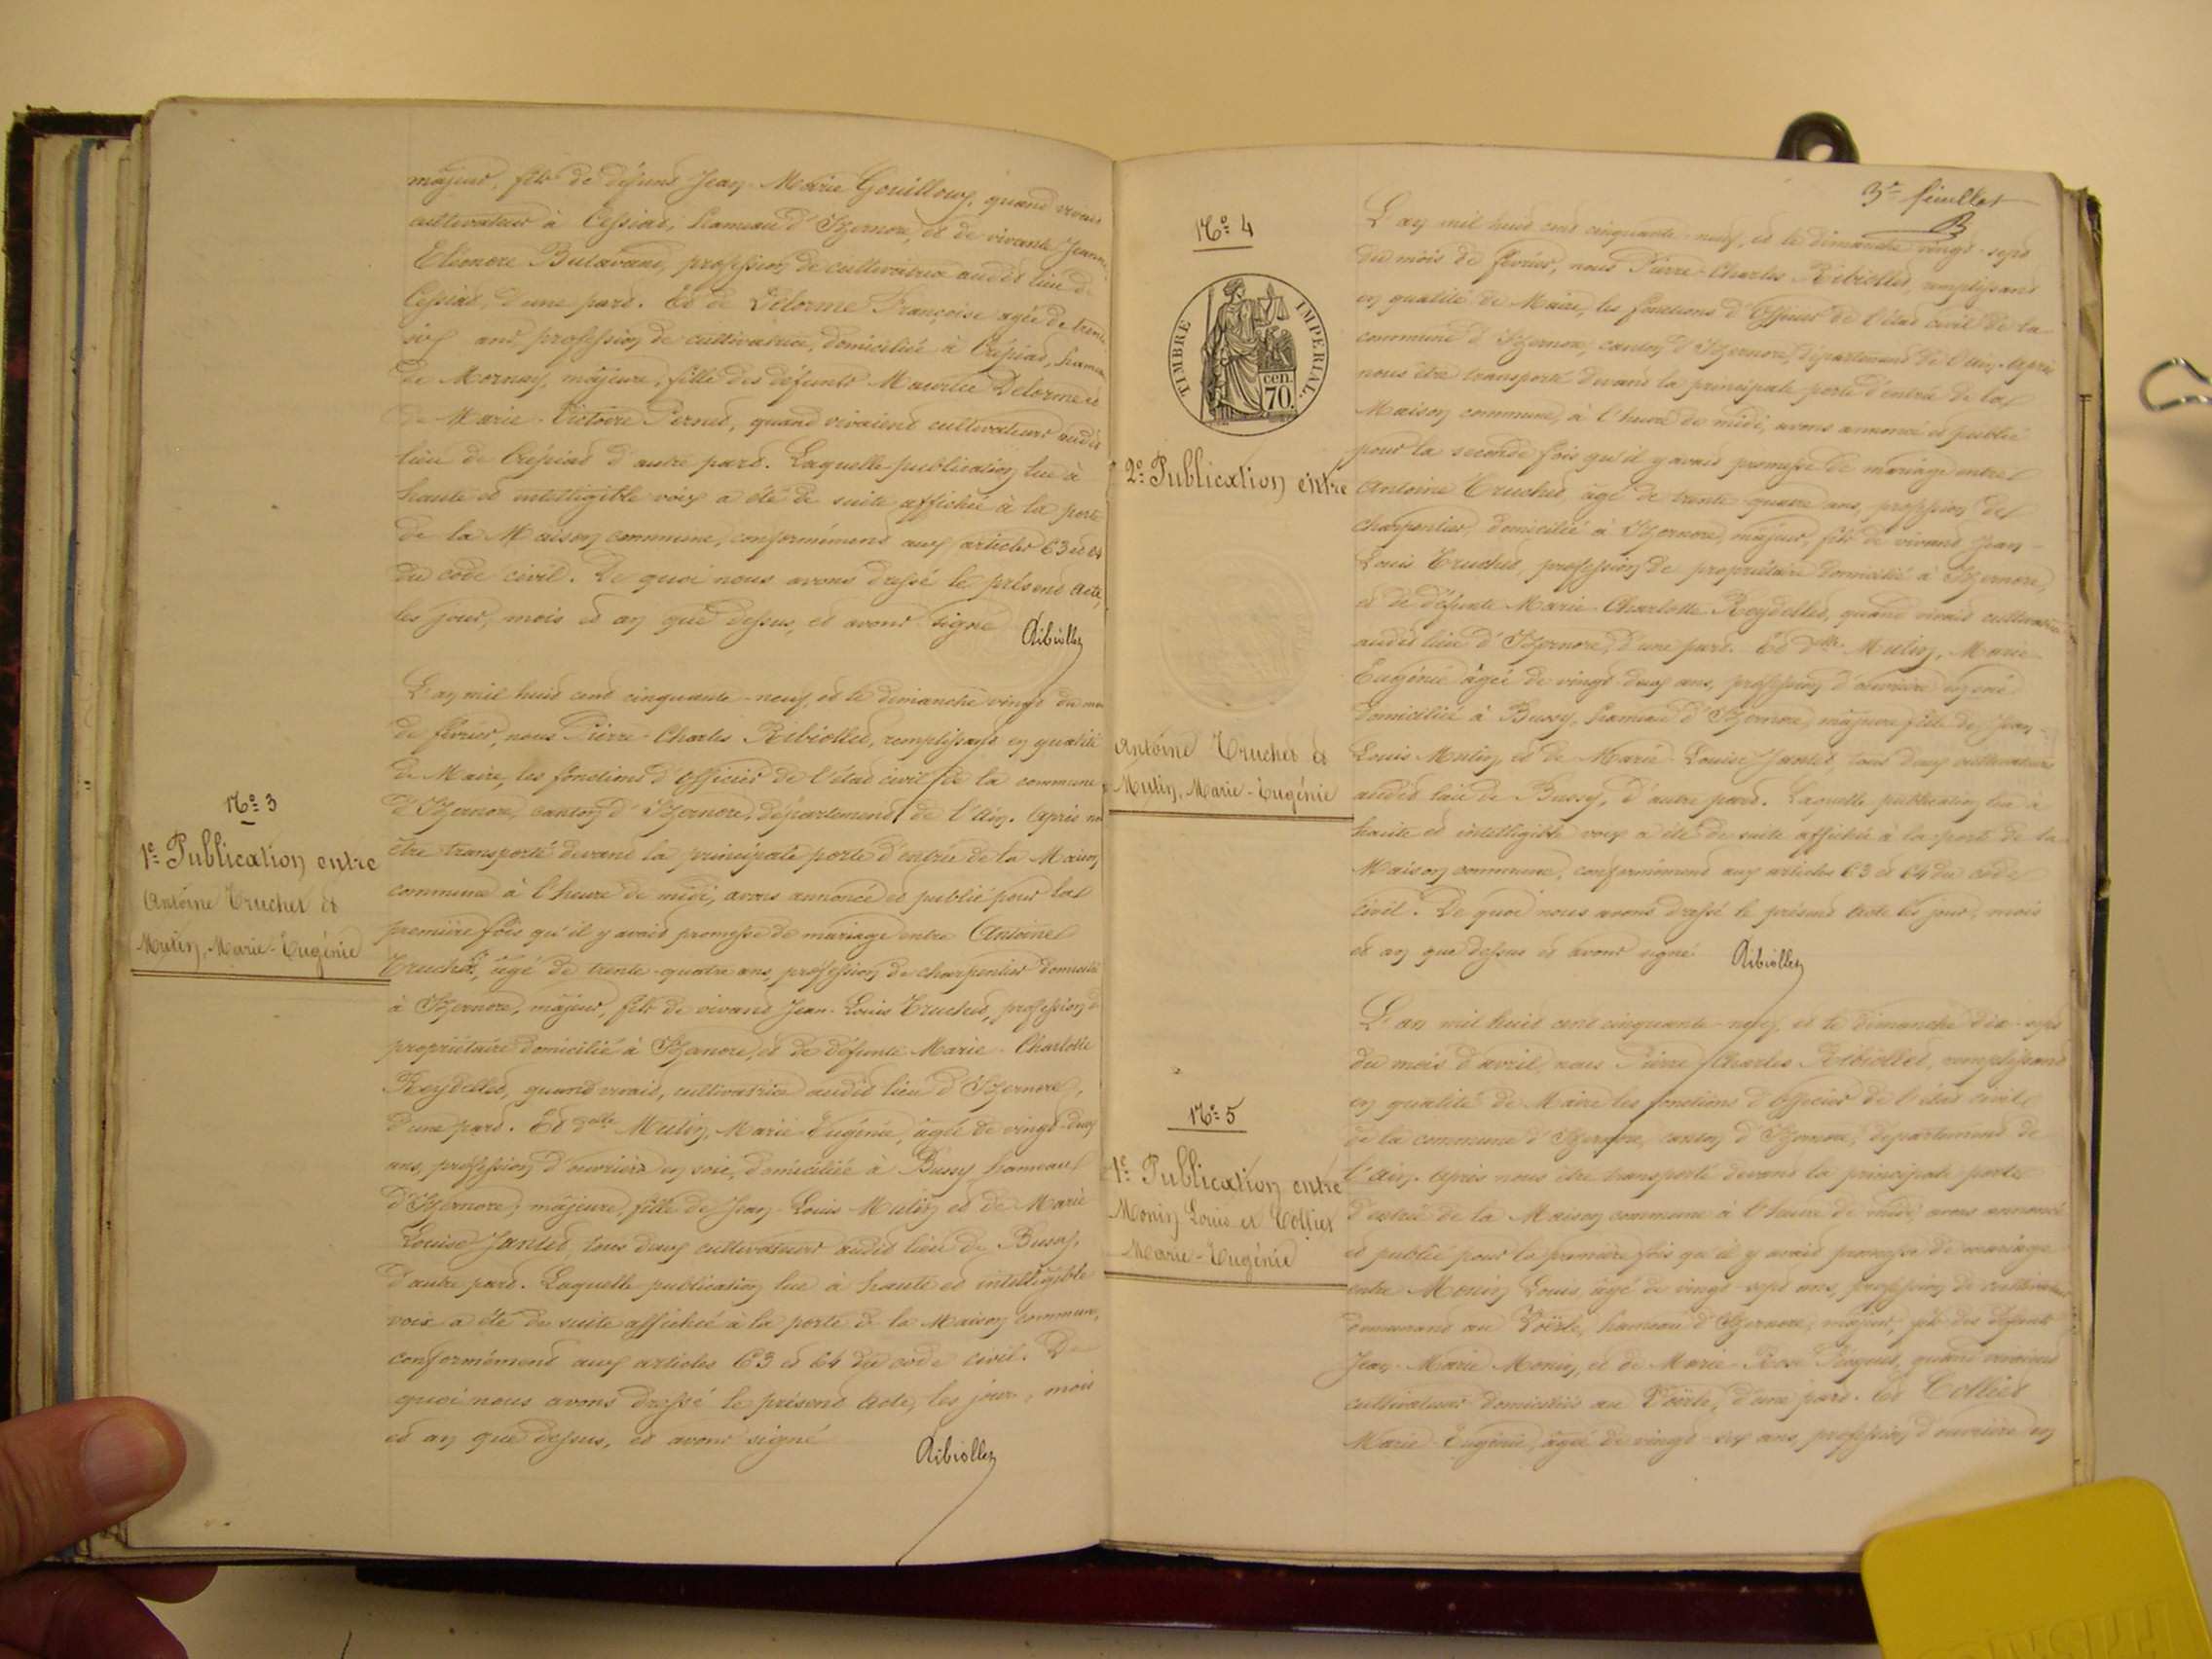 majeur, fils de défunt Jean-Marie Gouilloux, quand vivait
cultivateur à Cessiat, hameau d'Izernore, et de vivante Jeanne-
Eléonore Butavand, profession de cultivatrice audit lieu de
Cessiat, d'une part. Et de Delorme Françoise agée de trente
six ans, profession de cultivatrice, domiciliée à Crépiat, hameau
de Mornay, majeure, fille des défunts Maurice Delorme et
de Marie-Victoire Pernet, quand vivaient cultivateurs audit
lieu de Crépiat d'autre part. Laquelle publication lue à
haute et intelligible voix a été de suite affichée à la porte
de la Maison commune, conformément aux articles 63 et 64
du code civil. De quoi nous avons dressé le présent acte,
les jour, mois et an que dessus, et avons signé
Ribiollet
N° 3
1e Publication entre
Antoine Truchet et
Mutin, Marie-Eugénie
L'an mil huit cent cinquante-neuf, et le dimanche vingt du mois
de février, nous Pierre-Charles Ribiollet, remplissant en qualité
de Maire, les fonctions d'officier de l'état civil de la commune
d'Izernore, canton d'Izernore, département de l'Ain. Après nous
être transporté devant la principale porte d'entrée de la Maison
commune à l'heure de midi, avons annoncé et publié pour la
première fois qu'il y avait promesse de mariage entre Antoine
Truchet, âgé de trente-quatre ans, profession de charpentier domicilié
à Izernore, majeur, fils de vivant Jean-Louis Truchet, profession de
propriétaire domicilié à Izernore, et de défunte Marie-Charlotte
Reydellet, quand vivait, cultivatrice audit lieu d'Izernore,
d'une part. Et delle Mutin, Marie-Eugénie, agée de vingt-deux
ans, profession d'ouvrière en soie, domiciliée à Bussy hameau
d'Izernore, majeure, fille de Jean-Louis Mutin et de Marie
Louise Jantet, tous deux cultivateurs audit lieu de Bussy,
d'autre part. Laquelle publication lue à haute et intelligible
voix a été de suite affichée à la porte de la Maison commune,
conformément aux articles 63 et 64 du code civil. De
quoi nous avons dressé le présent acte, les jour, mois
et an que dessus, et avons signé
Ribiollet
3e feuillet
R
N° 4
TIMBRE IMPERIAL.
70 cen.
2e Publication entre
Antoine Truchet et
Mutin, Marie-Eugénie
L'an mil huit cent cinquante-neuf, et le dimanche vingt-sept
du mois de février, nous Pierre-Charles Ribiollet, remplissant
en qualité de Maire, les fonctions d'officier de l'état civil de la
commune d'Izernore, canton d'Izernore, département de l'Ain. Après
nous être transporté devant la principale porte d'entrée de la
Maison commune, à l'heure de midi, avons annoncé et publié
pour la seconde fois qu'il y avait promesse de mariage entre
Antoine Truchet, âgé de trente-quatre ans, profession de
charpentier, domicilié à Izernore, majeur, fils de vivant Jean-
Louis Truchet, profession de propriétaire domicilié à Izernore,
et de défunte Marie-Charlotte Reydellet, quand vivait cultivatrice
audit lieu d'Izernore, d'une part. Et delle Mutin, Marie-
Eugénie âgée de vingt-deux ans, profession d'ouvrière en soie
domiciliée à Bussy, hameau d'Izernore, majeure fille de Jean-
Louis Mutin et de Marie-Louise Jantet, tous deux cultivateurs
audit lieu de Bussy, d'autre part. Laquelle publication lue à
haute et intelligible voix a été de suite affichée à la porte de la
Maison commune, conformément aux articles 63 et 64 du code
civil. De quoi nous avons dressé le présent acte les jour, mois
et an que dessus et avons signé
Ribiollet
N° 5
1e Publication entre
Monin Louis et Collier
Marie-Eugénie
L'an mil huit cent cinquante-neuf, et le dimanche dix-sept
du mois d'avril, nous Pierre Charles Ribiollet, remplissant
en qualité de Maire les fonctions d'officier de l'état civil
de la commune d'Izernore, canton d'Izernore, département de
l'Ain. Après nous être transporté devant la principale porte
d'entrée de la Maison commune à l'heure de midi, avons annoncé
et publié pour la première fois qu'il y avait promesse de mariage
entre Monin Louis, âgé de vingt-sept ans, profession de cultivateur
demeurant au hameau d'Izernore, majeur, fils des défunts
Jean-Marie Monin, et de Marie-Rose quand vivaient
cultivateurs domiciliés au d'une part. Et Collier
Marie-Eugénie, âgée de vingt-six ans, profession d'ouvrière en